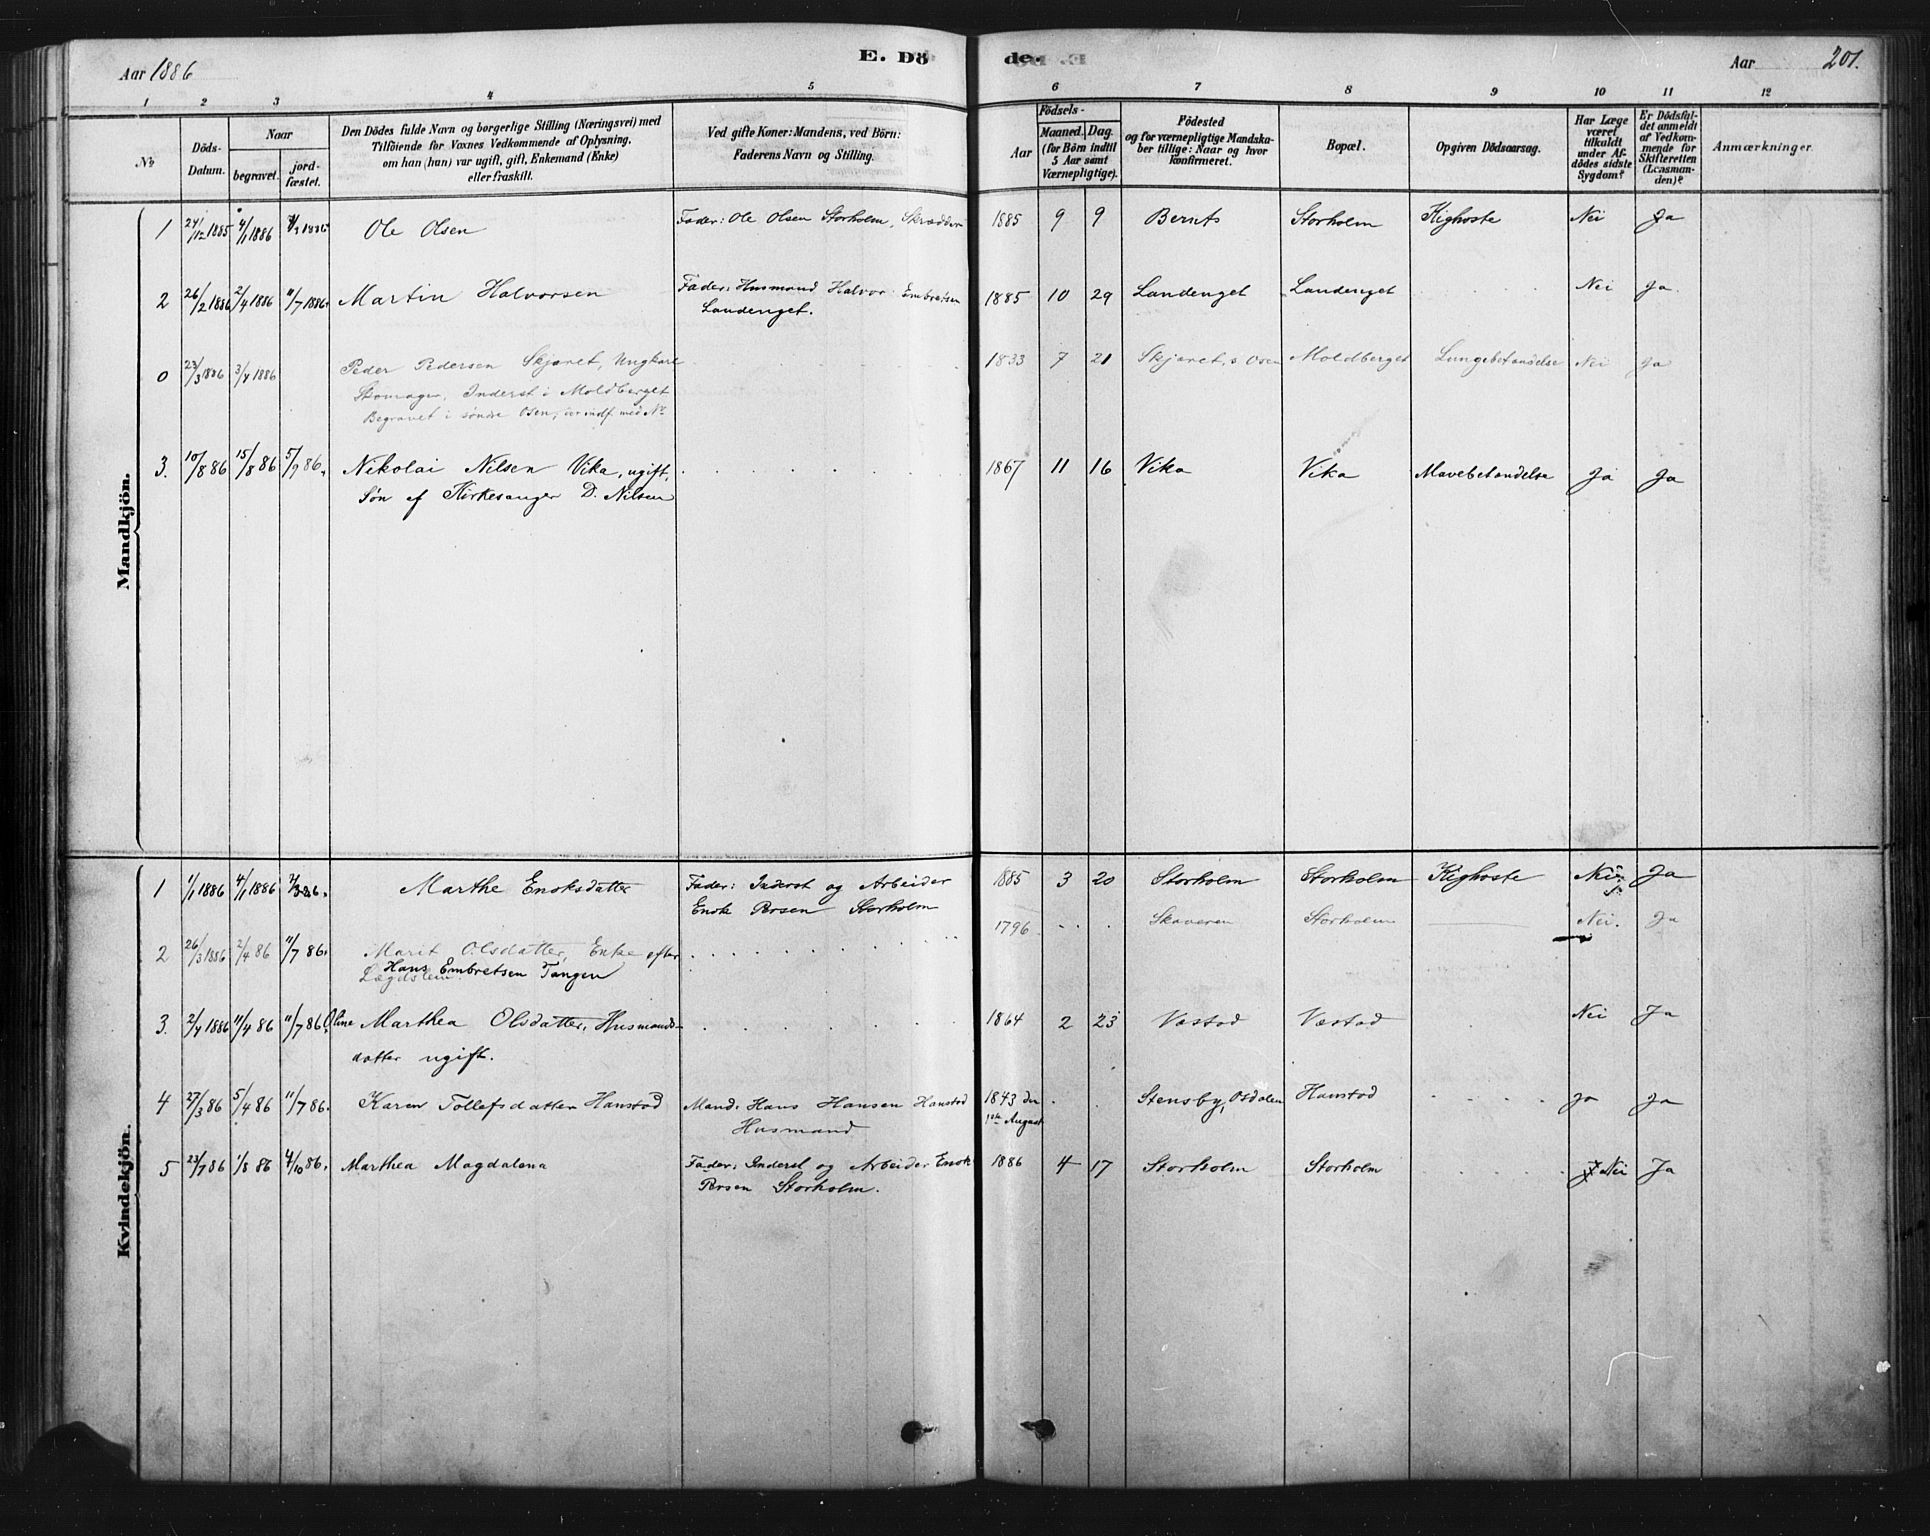 Aar 1886
E. Dö
de.
Aar
201.
1 2 3 4 5 6 7 8 9 10 11 12
No
Döds-
Datum.
Naar
begravet.
jord-
fæstet.
Den Dödes fulde Navn og borgerlige Stilling (Næringsvei) med
Tilföiende for Voxnes Vedkommende af Oplysning,
om han (hun) var ugift, gift, Enkemand (Enke)
eller fraskilt.
Ved gifte Koner: Mandens, ved Börn:
Faderens Navn og Stilling.
Födsels-
Aar
Maaned. Dag.
(for Börn indtil
5 Aar samt
Værnepligtige).
Födested
og for værnepligtige Mandska-
ber tillige: Naar og hvor
konfirmeret.
Bopæl.
Opgiven Dödsaarsag.
Har Læge
været
tilkaldt
under Af-
dödes sidste
Sygdom?
Er Dödsfal-
det anmeldt
af Vedkom-
mende for
Skifteretten
(Lensman-
den)?
Anmærkninger.
Mandkjön.
1 24/12 1885 4/1 1886 Ole Olsen Fader: Ole Olsen Storholm, Skrædder 1885 9 9 Bernts Storholm Kighoste Nei Ja
2 26/2 1886 2/4 1886 11/7 1886. Martin Halvorsen Fader: Husmand Halvor Embretsen 1885 10 29 Landenget Landenget Nei Ja.
Landenget.
0 23/3 1886 3/4 1886 Peder Pedersen Skjæret, Ungkarl 1833 7 21 Skjæret, s. Osen Moldberget Lungebetændelse Nei Ja
Skomager, Inderst i Moldberget
Begravet i søndre Osen, med No
3. 10/8 86 15/8 86 5/9 86. Nikolai Nilsen Vika, ugift, 1867 11 16 Vika Vika Mavebetændelse Ja Ja
Søn af Kirkesanger D. Nilsen
Kvindekjön.
1 1/1 1886 4/1 1886 Marthe Enoksdatter Fader: Inderst og Arbeider 1885 3 20 Storholm Storholm Kighoste Nei Ja
Enok Persen Storholm
2 26/3 1886 2/4 86 11/7 86. Marit Olsdatter, Enke efter 1796 Skaveren Storholm Nei. Ja
Hans Embretsen Tangen
Lægdslem.
3. 2/4 1886 11/4 86 11/7 86 Oline Marthea Olsdatter, Husmands- 1864 2 23 Væstad Væstad Nei Ja
datter ugift.
4 27/3 86 5/4 86 11/7 86. Karen Tollefsdatter Hanstad Mand: Hans Hansen Hanstad 1843 den Stensby, Osdalen Hanstad Ja Ja
Husmand 1ste August
5 23/7 86 1/8 86 4/10 86. Marthea Magdalena Fader: Inderst og Arbeider Enok 1886 4 17 Storholm Storholm Nei Ja
Persen Storholm.